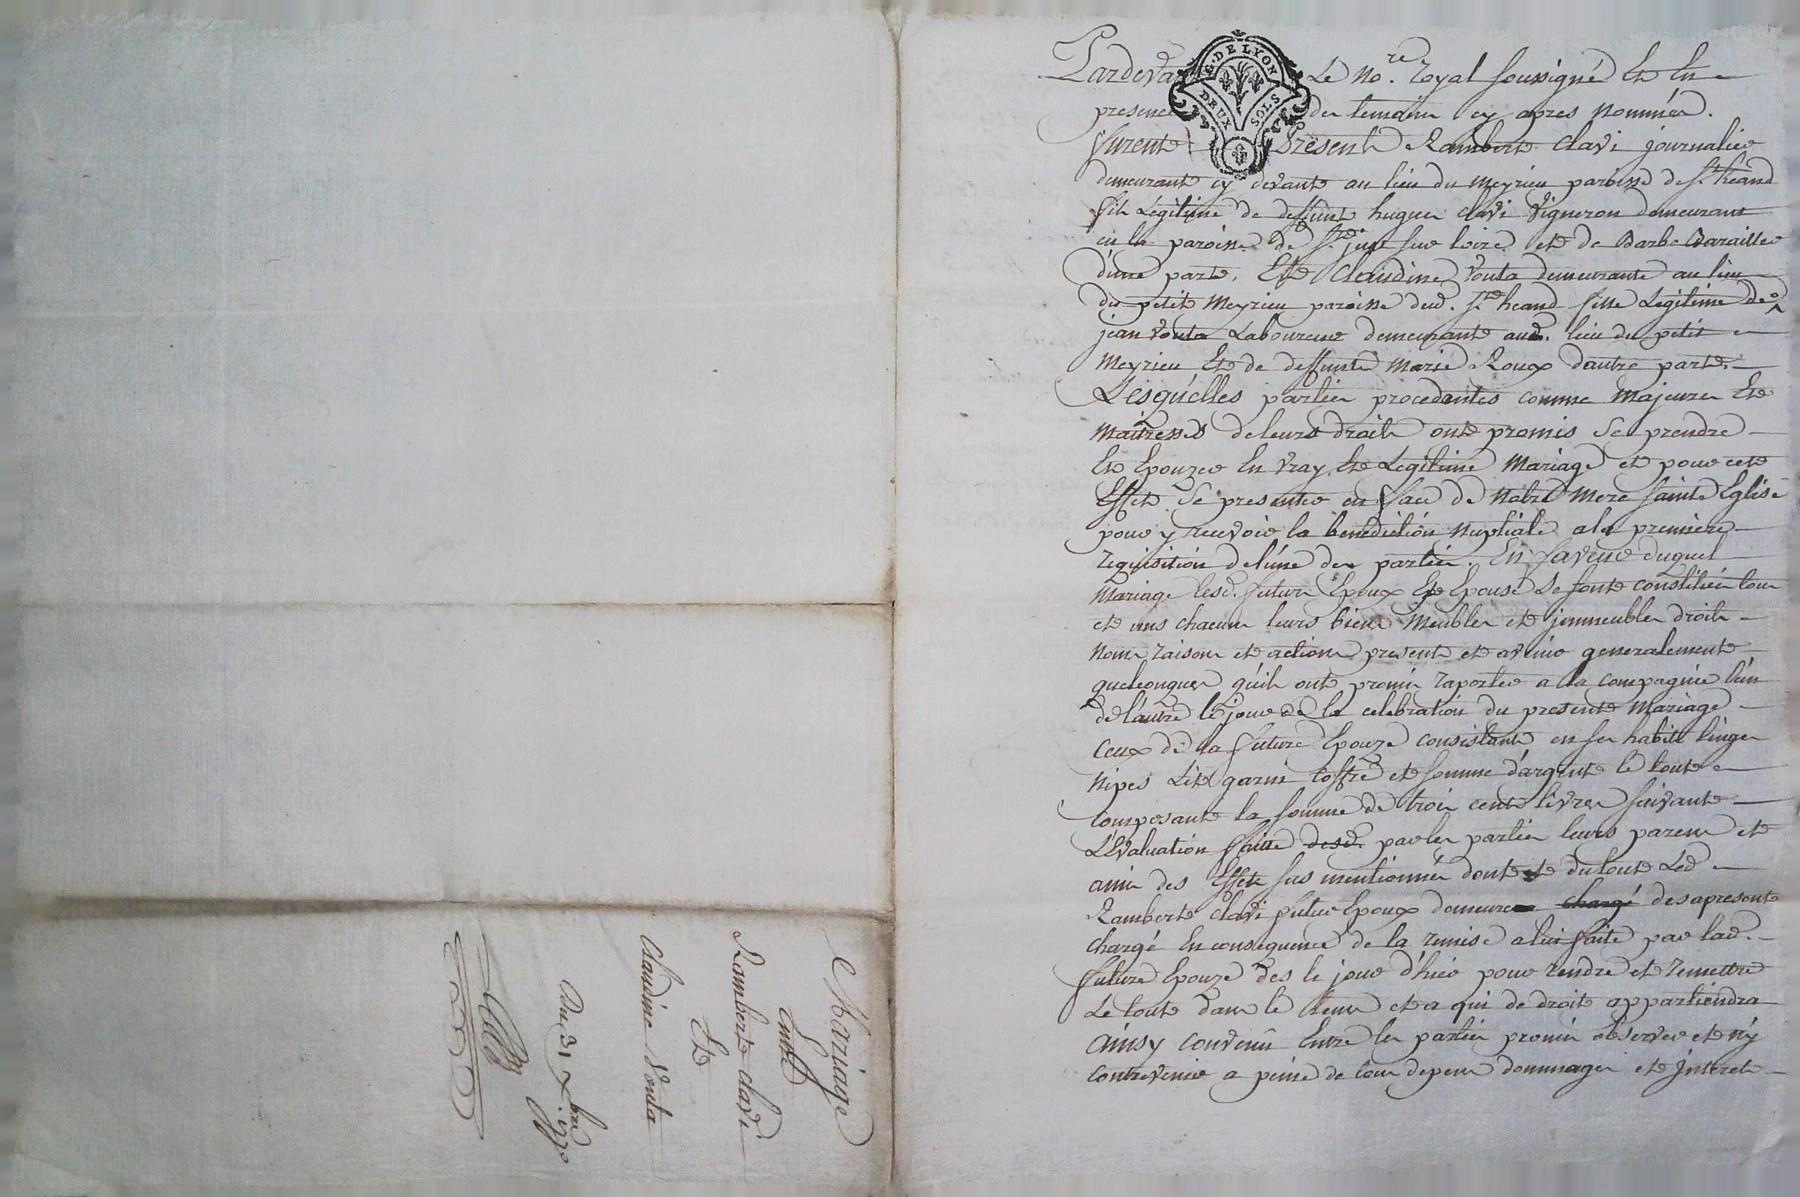 Mariage
Entre
Rambert clavi
Et
Claudine Vouta
Du 31 Xbre 1770
G. DE LYON
DEUX SOLS
Pardeva Le no.re royal soussigné Et En
presence des temoins cy apres nommés.
furent Présents Rambert clavi journalier
demeurant cy devant au lieu du meyrieu paroisse de St. héand
fils Légitime de deffunt hugues clavi Vigneron demeurant
en la paroisse de St. just sur loire et de Barbe Barailler
d'une part, Et Claudine Vouta demeurante au lieu
du petit meyrieu paroisse dud. St. héand fille Légitime de
jean Vouta Laboureur demeurant aud. lieu du petit
meyrieu Et de deffunte marie Roux dautre part.
Lesquelles parties procedantes comme majeures Et
maitresses de leurs droits ont promis Se prendre
Et Epouzer En vray Et Legitime Mariage et pour cet
Effet Se presenter en face de Notre mere sainte Eglise
pour y recevoir la benediction nuptiale a la premiere
requisition de l'une des parties. En faveur duquel
Mariage lesd. futurs Epoux Et Epouse Se sont constitués tous
et uns chacuns leurs biens meubles et jmmeubles droits
noms raisons et actions presents et avenir generalement
quelconques qu'ils ont promis raporter a la compagnie l'un
de l'autre le jour de la celebration du present mariage
ceux de la future Epouze consistant en ses habits linges
nipes Lit garni coffre et somme d'argent le tout
composant la somme de trois cent livres suivant
L'Evaluation faitte desd. par les parties leurs parens et
amis des Effets sus mentionnés dont et du tout Led
Rambert clavi futur Epoux demeure chargé desapresent
chargé En consequence de la remise a lui faite par lad.
future Epouze des le jour d'hier pour rendre et remettre
Le tout dans le tems et a qui de droit appartiendra
ainsy convenû Entre les parties promis observer et n'y
contrevenir a peine de tous depens dommages et jnterets